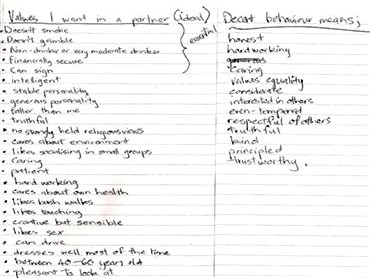 Values I want in a partner (ideal)
• Doesn't smoke
• Doesn't gamble
• Non-drinker or very moderate drinker
• financially secure
essential
• Can sign
• intelligent
• stable personality
• generous personality
• taller than me
• truthful
• no strongly held religious views
• cares about environment
• likes socialising in small groups
• caring
• patient
• hard working
• cares about own health
• likes bush walks
• likes touching
• creative but sensible
• likes sex
• can drive
• dresses well most of the time
• between 40-60 years old
• pleasant to look at
Decent behaviour means;
honest
hardworking
caring
values equality
considerate
interested in others
even-tempered
respectful of others
truthful
kind
principled
trustworthy.